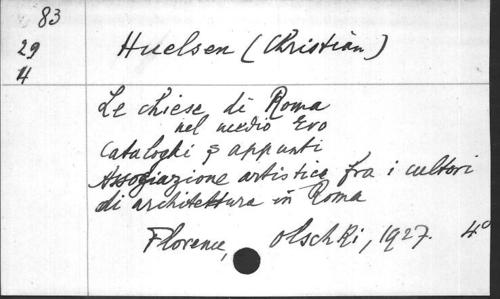 83
29
4
Huelsen (Christian)
Le chiese di Roma
nel medio Evo
Cataloghi & appunti
Associazione artistica fra i cultori
di architettura in Roma
Florence, Olschki, 1927. 4°